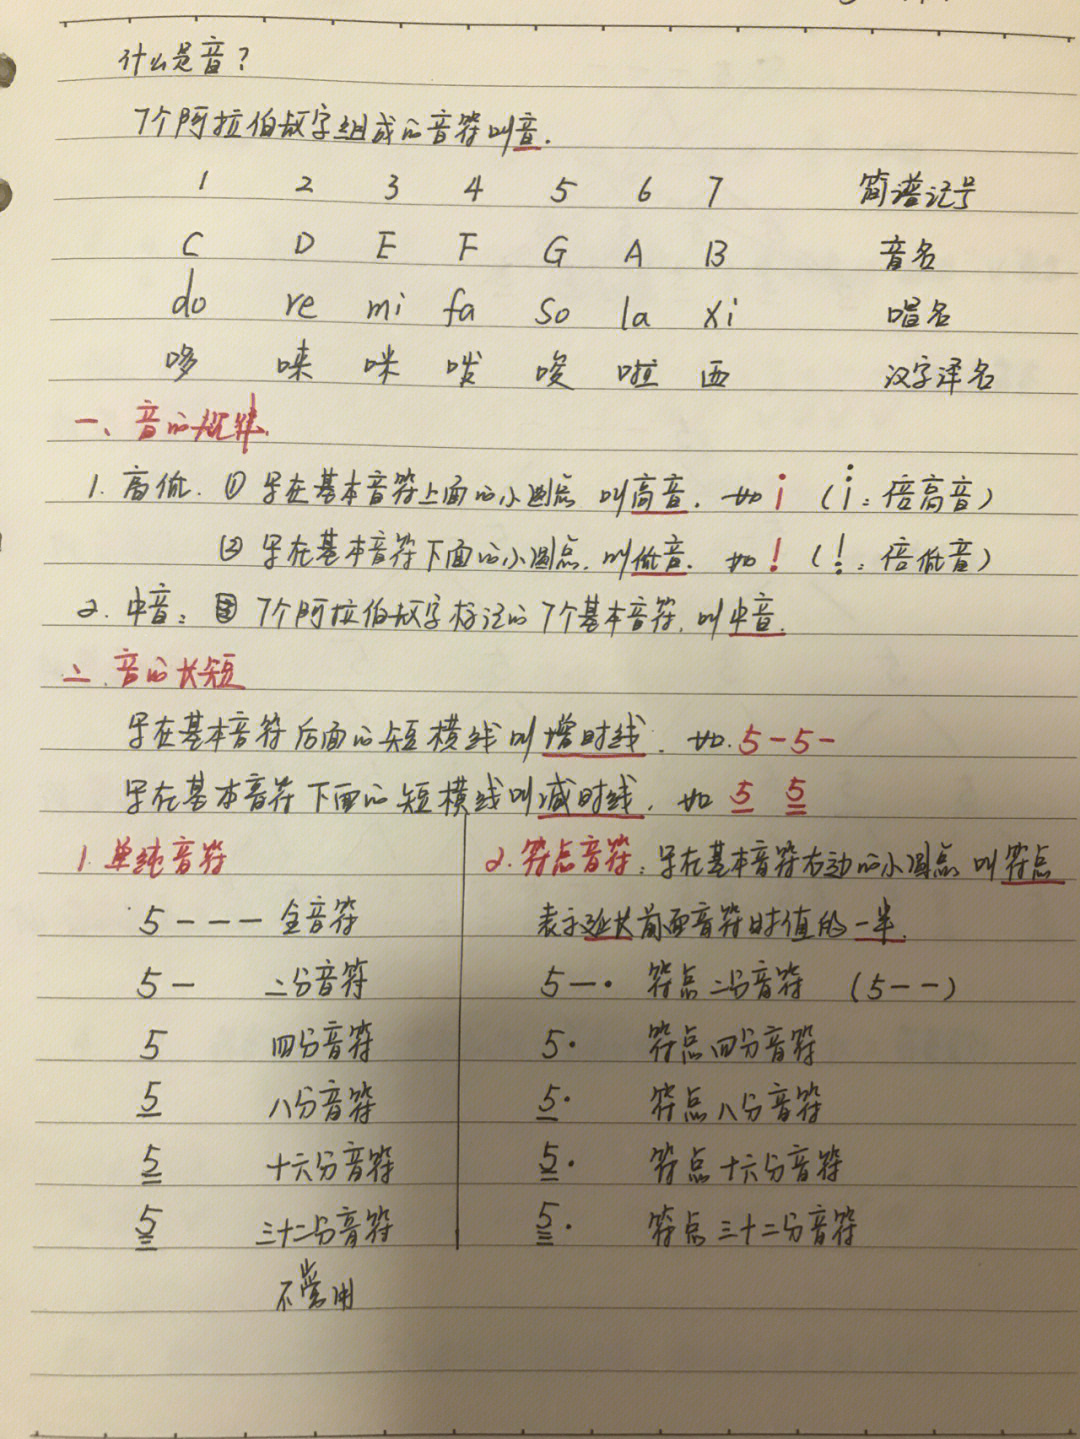 什么是音?
7个阿拉伯数字组成的音符叫音.
1 2 3 4 5 6 7 简谱记号
C D E F G A B 音名
do re mi fa so la xi 唱名
哆 唻 咪 发 唆 啦 西 汉字译名
一、音的规律
1. 高低. ① 写在基本音符上面的小圆点 叫高音. 如 i (i: 倍高音)
② 写在基本音符下面的小圆点. 叫低音. 如 ! (!: 倍低音)
2. 中音: 7个阿拉伯数字标记的7个基本音符. 叫中音.
二. 音的长短
写在基本音符后面的短横线叫增时线. 如. 5-5-
写在基本音符下面的短横线叫减时线. 如 5 5
1. 单纯音符
5 - - - 全音符
5 - 二分音符
5 四分音符
5 八分音符
5 十六分音符
5 三十二分音符
不常用
2. 符点音符: 写在基本音符右边的小圆点 叫符点
表示延长前面音符时值的一半.
5-· 符点二分音符 (5--)
5· 符点四分音符
5· 符点八分音符
5· 符点十六分音符
5· 符点三十二分音符